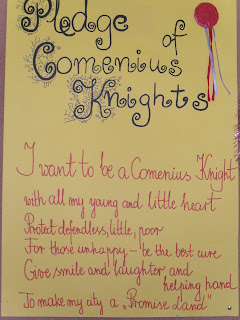 Pledge
of
Comenius
Knights
I want to be a Comenius Knight
with all my young and little heart
Protect defendless, little, poor
For those unhappy – be the best cure
Give smile and laughter and
helping hand
To make my city a „Promise Land"